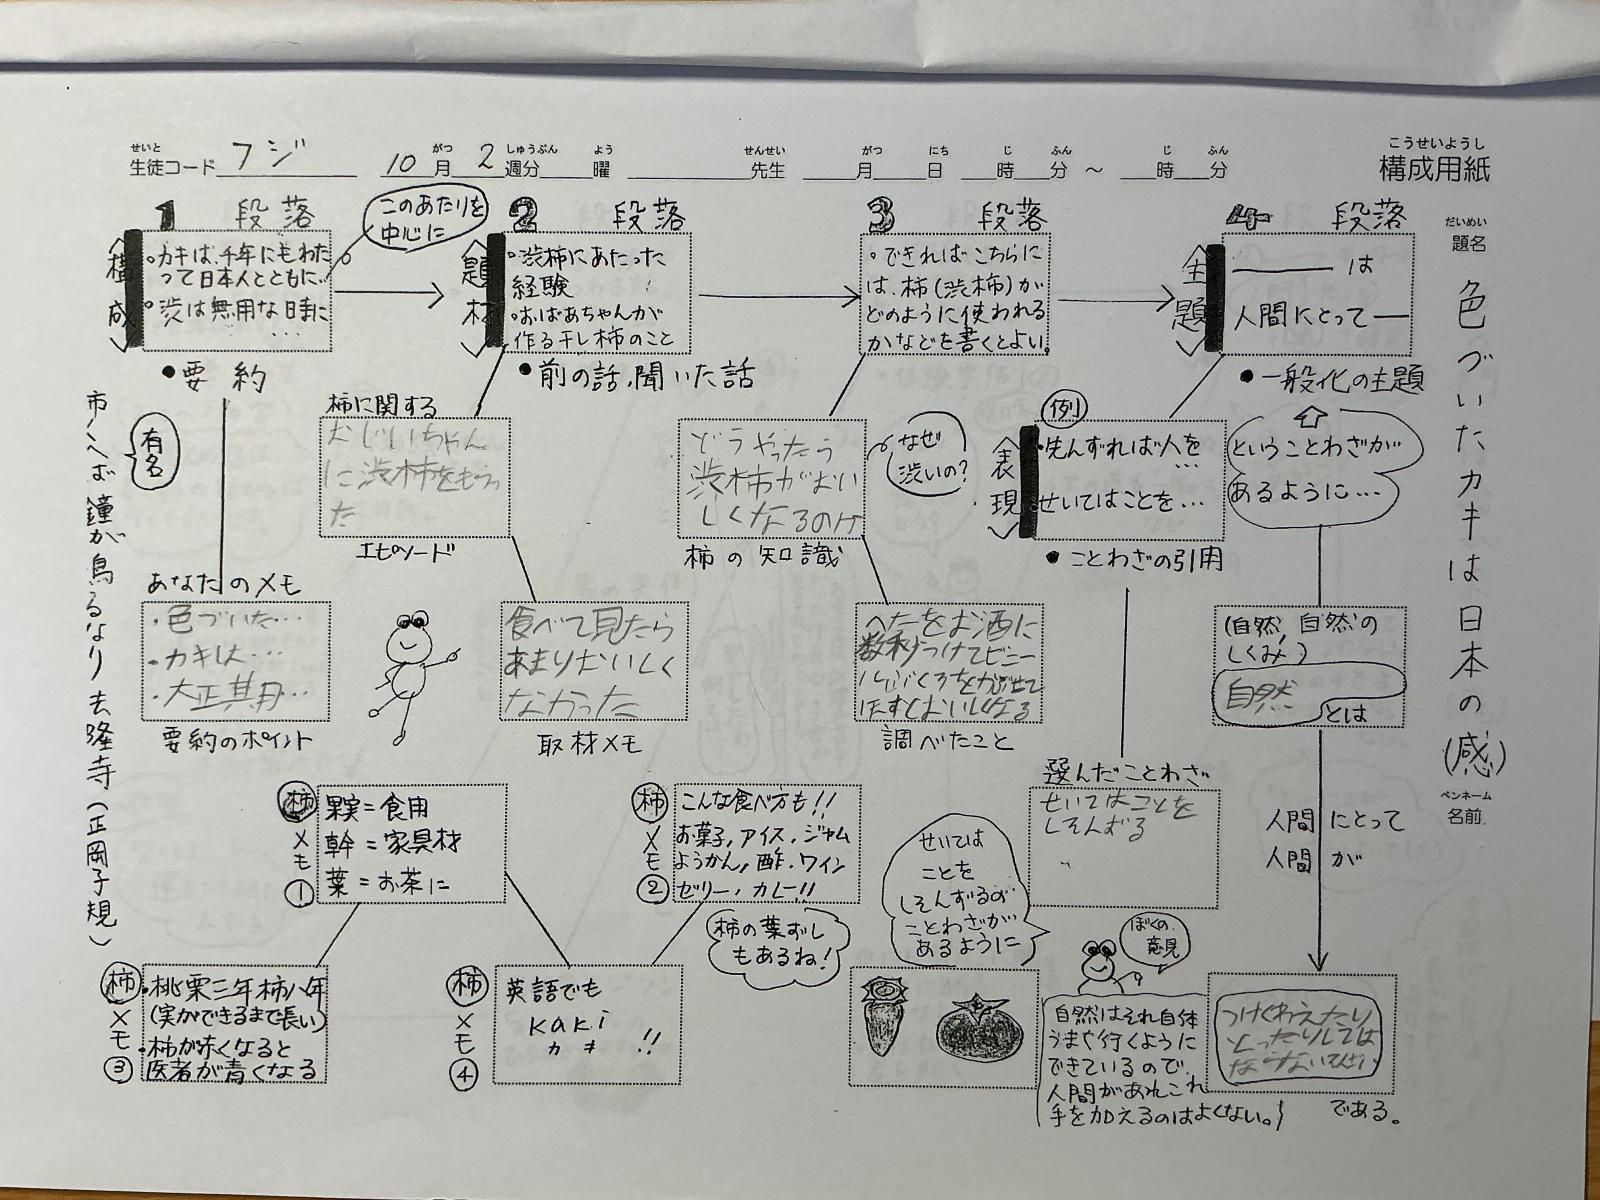 こうせいようし
構成用紙
せいと
生徒コード フジ
がつ しゅうぶん よう
10月2週分 曜
せんせい
先生
がつ にち じ ふん じ ふん
月 日 時 分 〜 時 分
だいめい
題名
色づいたカキは日本の(感)
ペンネーム
名前
1 段落
<構成>
・カキは、千年にもわた
って日本人とともに…
・渋は無用な時に
…
このあたりを
中心に
●要約
2 段落
<題材>
・渋柿にあたった
経験
・おばあちゃんが
作る干し柿のこと
●前の話、聞いた話
3 段落
・できればこちらに
は、柿(渋柿)が
どのように使われる
かなどを書くとよい。
4 段落
<主題>
は
人間にとって―
●一般化の主題
有名
市へば鐘が鳥るなり 去隆寺(正岡子規)
柿に関する
おじいちゃん
に渋柿をもらっ
た
エピソード
どうやったら
渋柿がおい
しくなるのけ
柿の知識
なぜ
渋いの?
例
<表現>
・先んずれば人を
…
せいてはことを…
●ことわざの引用
ということわざが
あるように…
あなたのメモ
・色づいた…
・カキは…
・大正其月…
要約のポイント
食べて見たら
あまりおいしく
なかった
取材メモ
へたをお酒に
数秒つけてビニー
ルぶくろをかぶせて
ほすとおいしくなる
調べたこと
(自然、自然の
しくみ)
自然
とは
人間にとって
人間が
選んだことわざ
せいてはことを
しそんずる
せいては
ことを
しそんずるの
ことわざが
あるように
柿メモ①
果実=食用
幹=家具材
葉=お茶に
柿メモ②
こんな食べ方も!!
お菓子、アイス、ジャム
ようかん、酢、ワイン
ゼリー、カレー!!
柿の葉ずし
もあるね!
柿メモ③
・桃栗三年柿八年
(実ができるまで長い)
・柿が赤くなると
医者が青くなる
柿メモ④
英語でも
kaki
カキ !!
ぼくの
意見
自然はそれ自体
うまく行くように
できているので、
人間があれこれ
手を加えるのはよくない。
つけくわえたり
とったりしては
ならない
である。